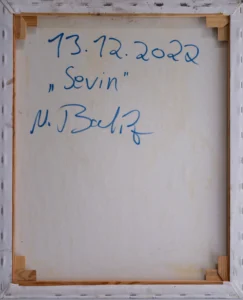 13.12.2022
„Sevin"
N. Balız